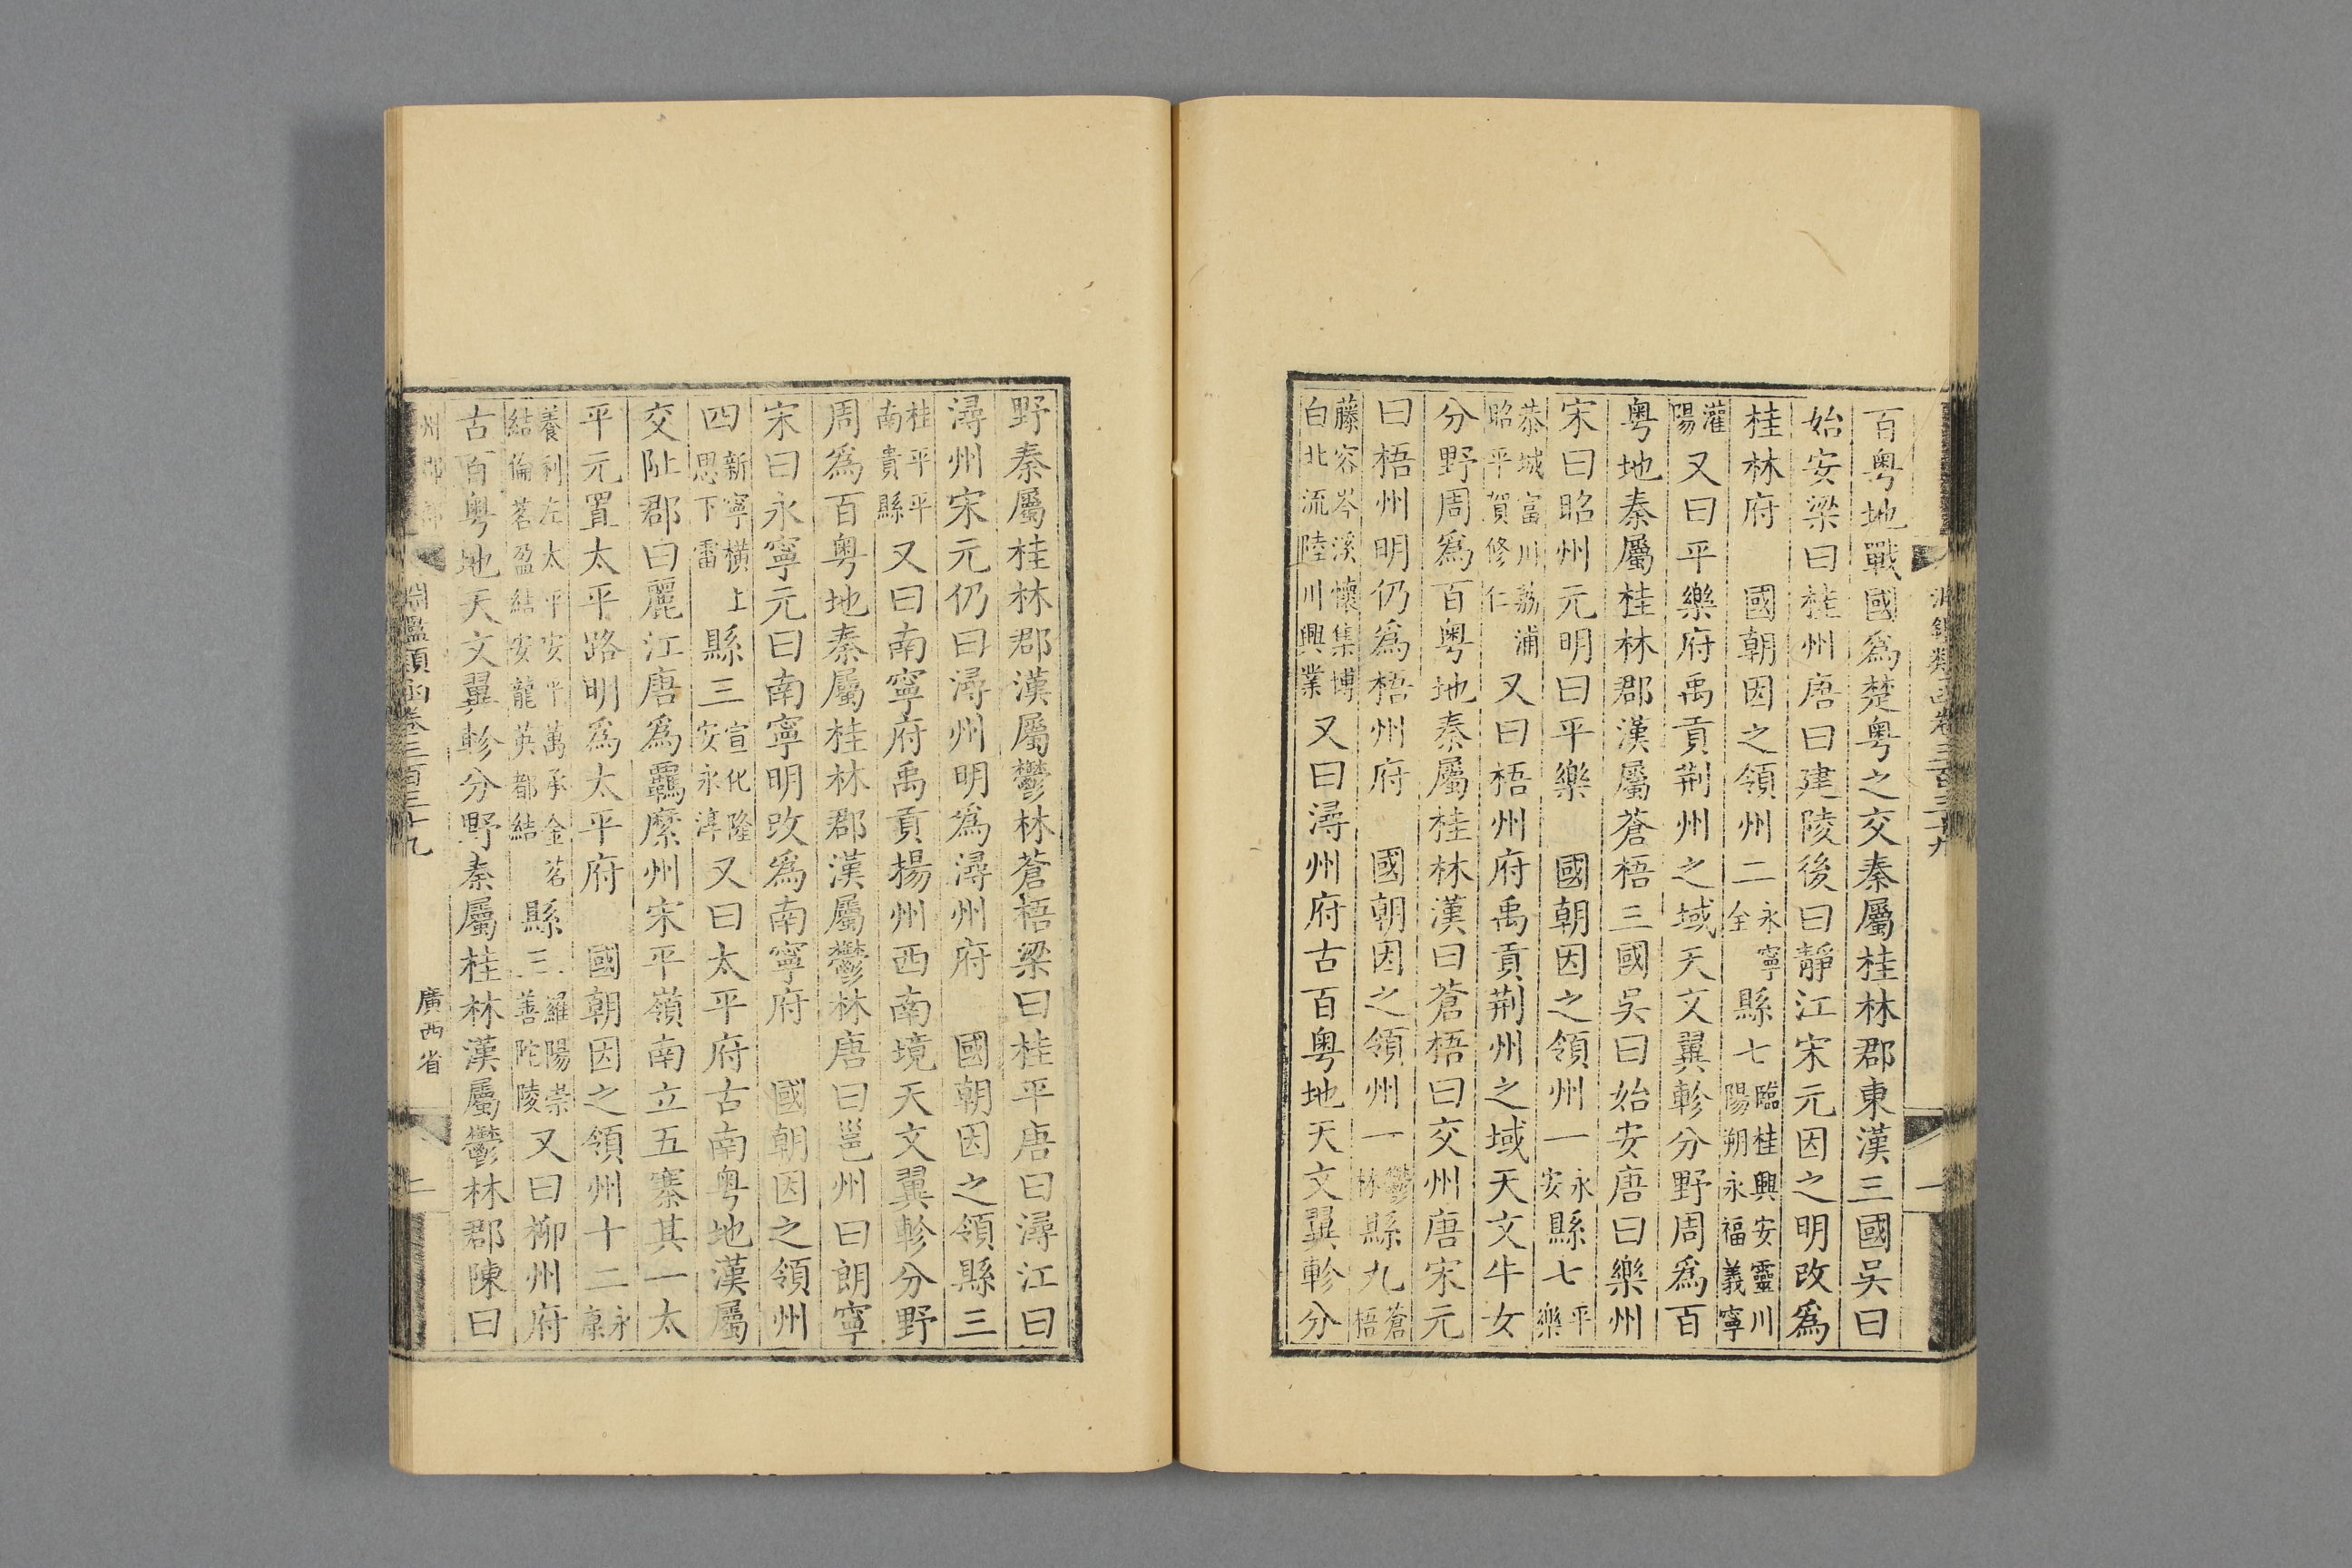 百粤地戰國爲楚粤之交秦屬桂林郡東漢三國吴曰
始安梁曰桂州唐曰建陵後曰靜江宋元因之明改爲
桂林府　國朝因之領州二永寧全縣七臨桂興安靈川陽朔永福義寧
灌陽又曰平樂府禹貢荆州之域天文翼軫分野周爲百
粤地秦屬桂林郡漢屬蒼梧三國吴曰始安唐曰樂州
宋曰昭州元明曰平樂　國朝因之領州一永安縣七平樂
恭城富川荔浦昭平賀修仁又曰梧州府禹貢荆州之域天文牛女
分野周爲百粤地秦屬桂林漢曰蒼梧曰交州唐宋元
曰梧州明仍爲梧州府　國朝因之領州一鬱林縣九蒼梧
藤容岑溪懷集博白北流陸川興業又曰潯州府古百粤地天文翼軫分
野秦屬桂林郡漢屬鬱林蒼梧梁曰桂平唐曰潯江曰
潯州宋元仍曰潯州明爲潯州府　國朝因之領縣三
桂平平南貴縣又曰南寧府禹貢揚州西南境天文翼軫分野
周爲百粤地秦屬桂林郡漢屬鬱林唐曰邕州曰朗寧
宋曰永寧元曰南寧明改爲南寧府　國朝因之領州
四新寧橫上思下雷縣三宣化隆安永淳又曰太平府古南粤地漢屬
交阯郡曰麗江唐爲羈縻州宋平嶺南立五寨其一太
平元置太平路明爲太平府　國朝因之領州十二永康
養利左太平安平萬承金茗結倫茗盈結安龍英都結縣三羅陽崇善陀陵又曰柳州府
古百粤地天文翼軫分野秦屬桂林漢屬鬱林郡陳曰
淵鑑類函卷三百三十九
廣西省
二